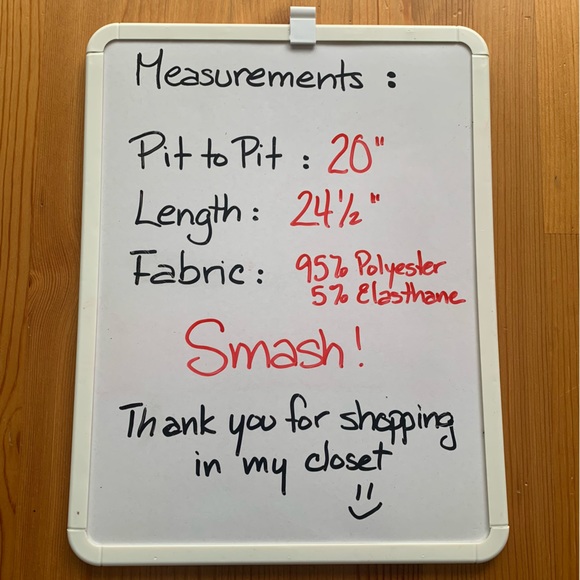 Measurements :
Pit to Pit : 20"
Length : 24 1/2"
Fabric : 95% Polyester
5% Elasthane
Smash!
Thank you for shopping
in my closet